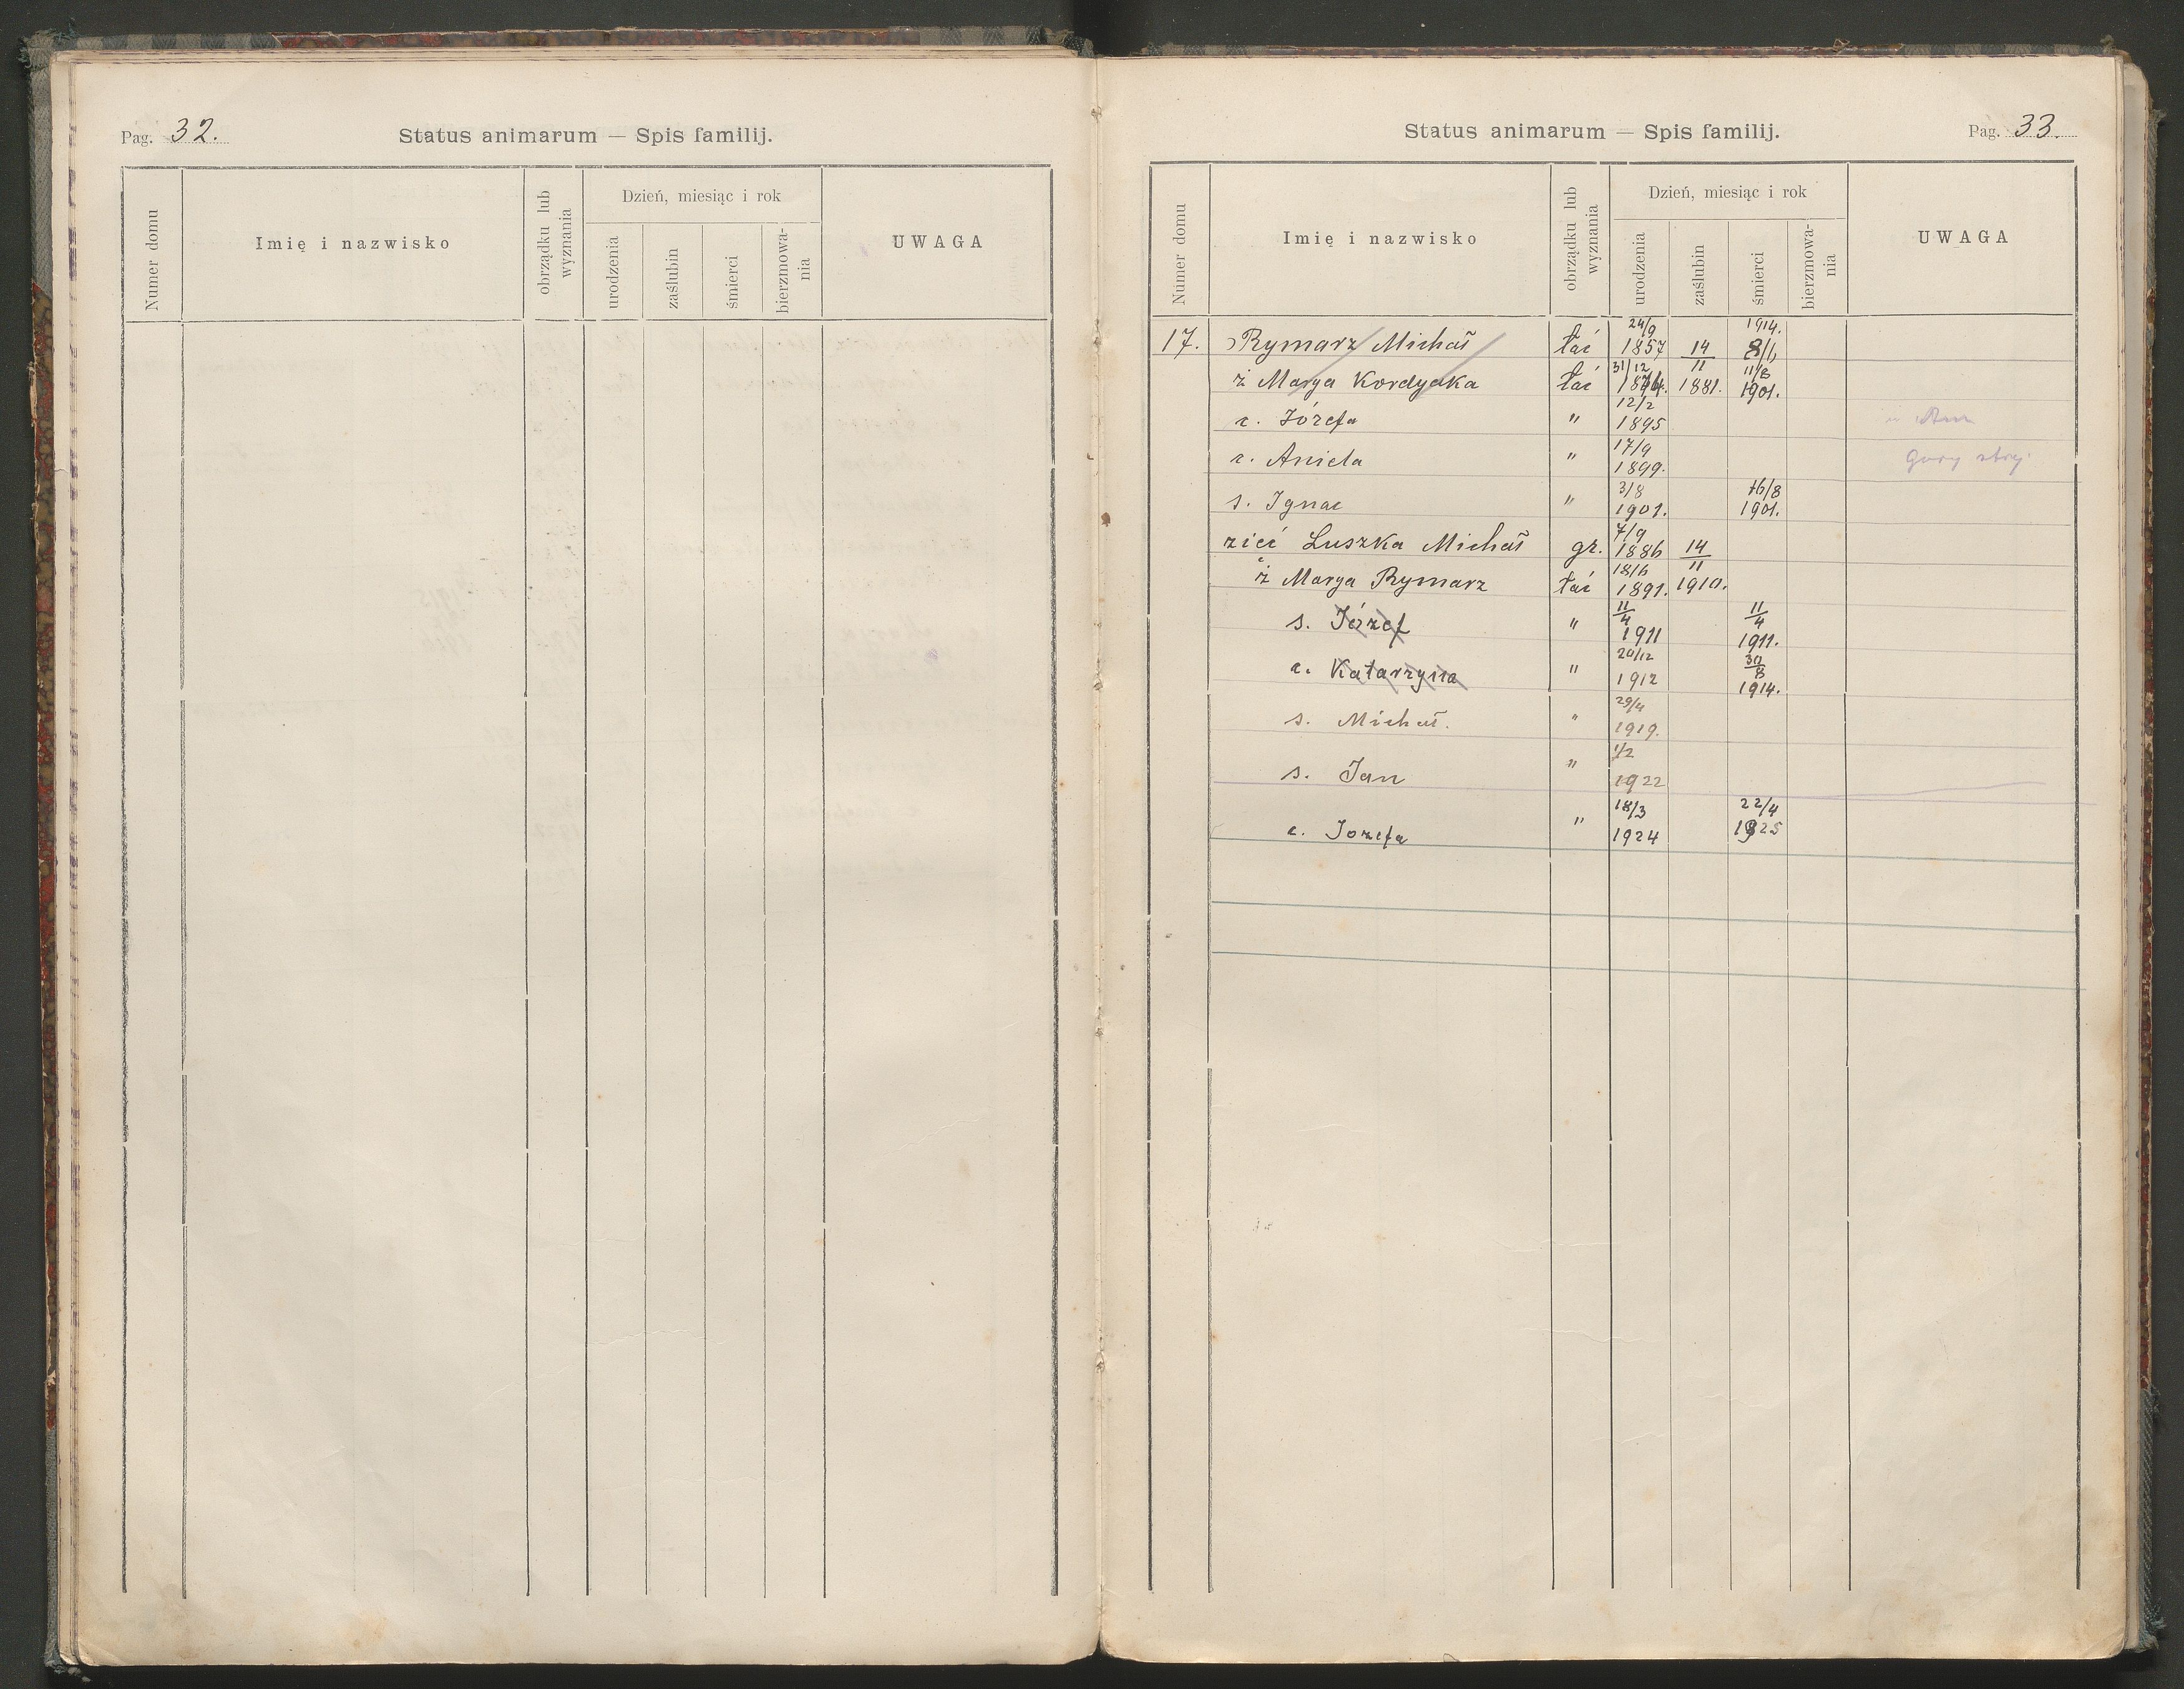 Pag. 32.
Status animarum — Spis familij.
Numer domu
Imię i nazwisko
obrządku lub wyznania
Dzień, miesiąc i rok
urodzenia
zaślubin
śmierci
bierzmowa-
nia
UWAGA
Status animarum — Spis familij.
Pag. 33.
Numer domu
Imię i nazwisko
obrządku lub wyznania
Dzień, miesiąc i rok
urodzenia
zaślubin
śmierci
bierzmowa-
nia
UWAGA
17. Rymarz Michał łać 24/9 1857 14/11 1881. 1914. 8/6
ż Marya Kordyaka łać 31/12 11/8 1901.
c. Józefa " 12/2 1895
c. Aniela " 17/9 1899.
s. Ignac " 3/8 1901. 16/8 1901.
zięć Luszka Michał gr. 7/9 1886 14/11 1910.
ż Marya Rymarz łać 18/6 1891.
s. Józef " 11/4 1911 11/4 1911.
c. Katarzyna " 20/12 1912 30/8 1914.
s. Michał. " 29/4 1919.
s. Jan " 1/2 1922
c. Jozefa " 18/3 1924 22/4 1925